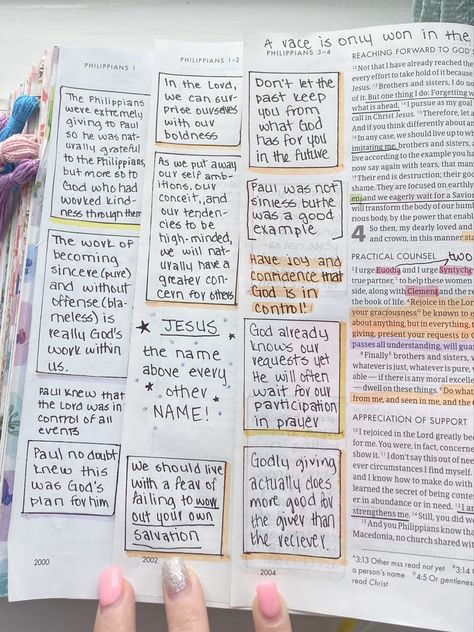 PHILIPPIANS 1
The Philippians
were extremely
giving to Paul
so he was nat-
urally grateful
to the Philippians,
but more so to
God who had
worked kind-
ness through them
The work of
becoming
sincere (pure)
and without
offense (bla-
meless) is
really God's
work within
us.
Paul knew that
the Lord was in
control of all
events
Paul no doubt
knew this
was God's
plan for him
2000
PHILIPPIANS 1–2
In the Lord,
we can sur-
prise ourselves
with our
boldness
As we put away
our self amb
itions, our
conceit, and
our tenden-
cies to be
high-minded,
we will nat-
urally have a
greater con-
cern for others
JESUS
the name
above every
other
NAME!
We should live
with a fear of
failing to work
out your own
salvation
2002
PHILIPPIANS 3–4
Don't let the
past keep
you from
what God
has for you
in the future
Paul was not
sinless but he
was a good
example
Have joy and
confidence that
God is in
control!
God already
knows our
requests yet
He will often
wait for our
participation
in prayer
Godly giving
actually does
more good for
the giver than
the reciever.
2004
A race is only won in the
REACHING FORWARD TO GOD'S
12 Not that I have already reached the
every effort to take hold of it because
Jesus. 13 Brothers and sisters, I do no
of it. But one thing I do: Forgetting w
what is ahead, 14 I pursue as my goal
call in Christ Jesus. 15 Therefore, let a
And if you think differently about an
16 In any case, we should live up to w
imitating me, brothers and sisters, a
live according to the example you ha
now say again with tears, that many
19 Their end is destruction; their god
shame. They are focused on earthly
and we eagerly wait for a Savior
will transform the body of our humb
rious body, by the power that enabl
4
So then, my dearly loved and
and crown, in this manner
PRACTICAL COUNSEL
two
2 I urge Euodia and I urge Syntyche
true partner, to help these women
side, along with Clement and the re
the book of life. 4 Rejoice in the Lor
your graciousness be known to e
about anything, but in everything,
giving, present your requests to G
passes all understanding, will guar
8 Finally brothers and sisters, w
whatever is just, whatever is pure, w
able — if there is any moral excelle
— dwell on these things. 9 Do what
from me, and seen in me, and the
APPRECIATION OF SUPPORT
10 I rejoiced in the Lord greatly beca
for me. You were, in fact, concerne
show it. 11 I don't say this out of nee
ever circumstances I find myself.
and I know how to make do with
learned the secret of being conte
er in abundance or in need. 13 I am
strengthens me. 14 Still, you did we
15 And you Philippians know tha
Macedonia, no church shared wit
3:13 Other mss read not yet
a person's name
4:5 Or gentlenes
read Christ